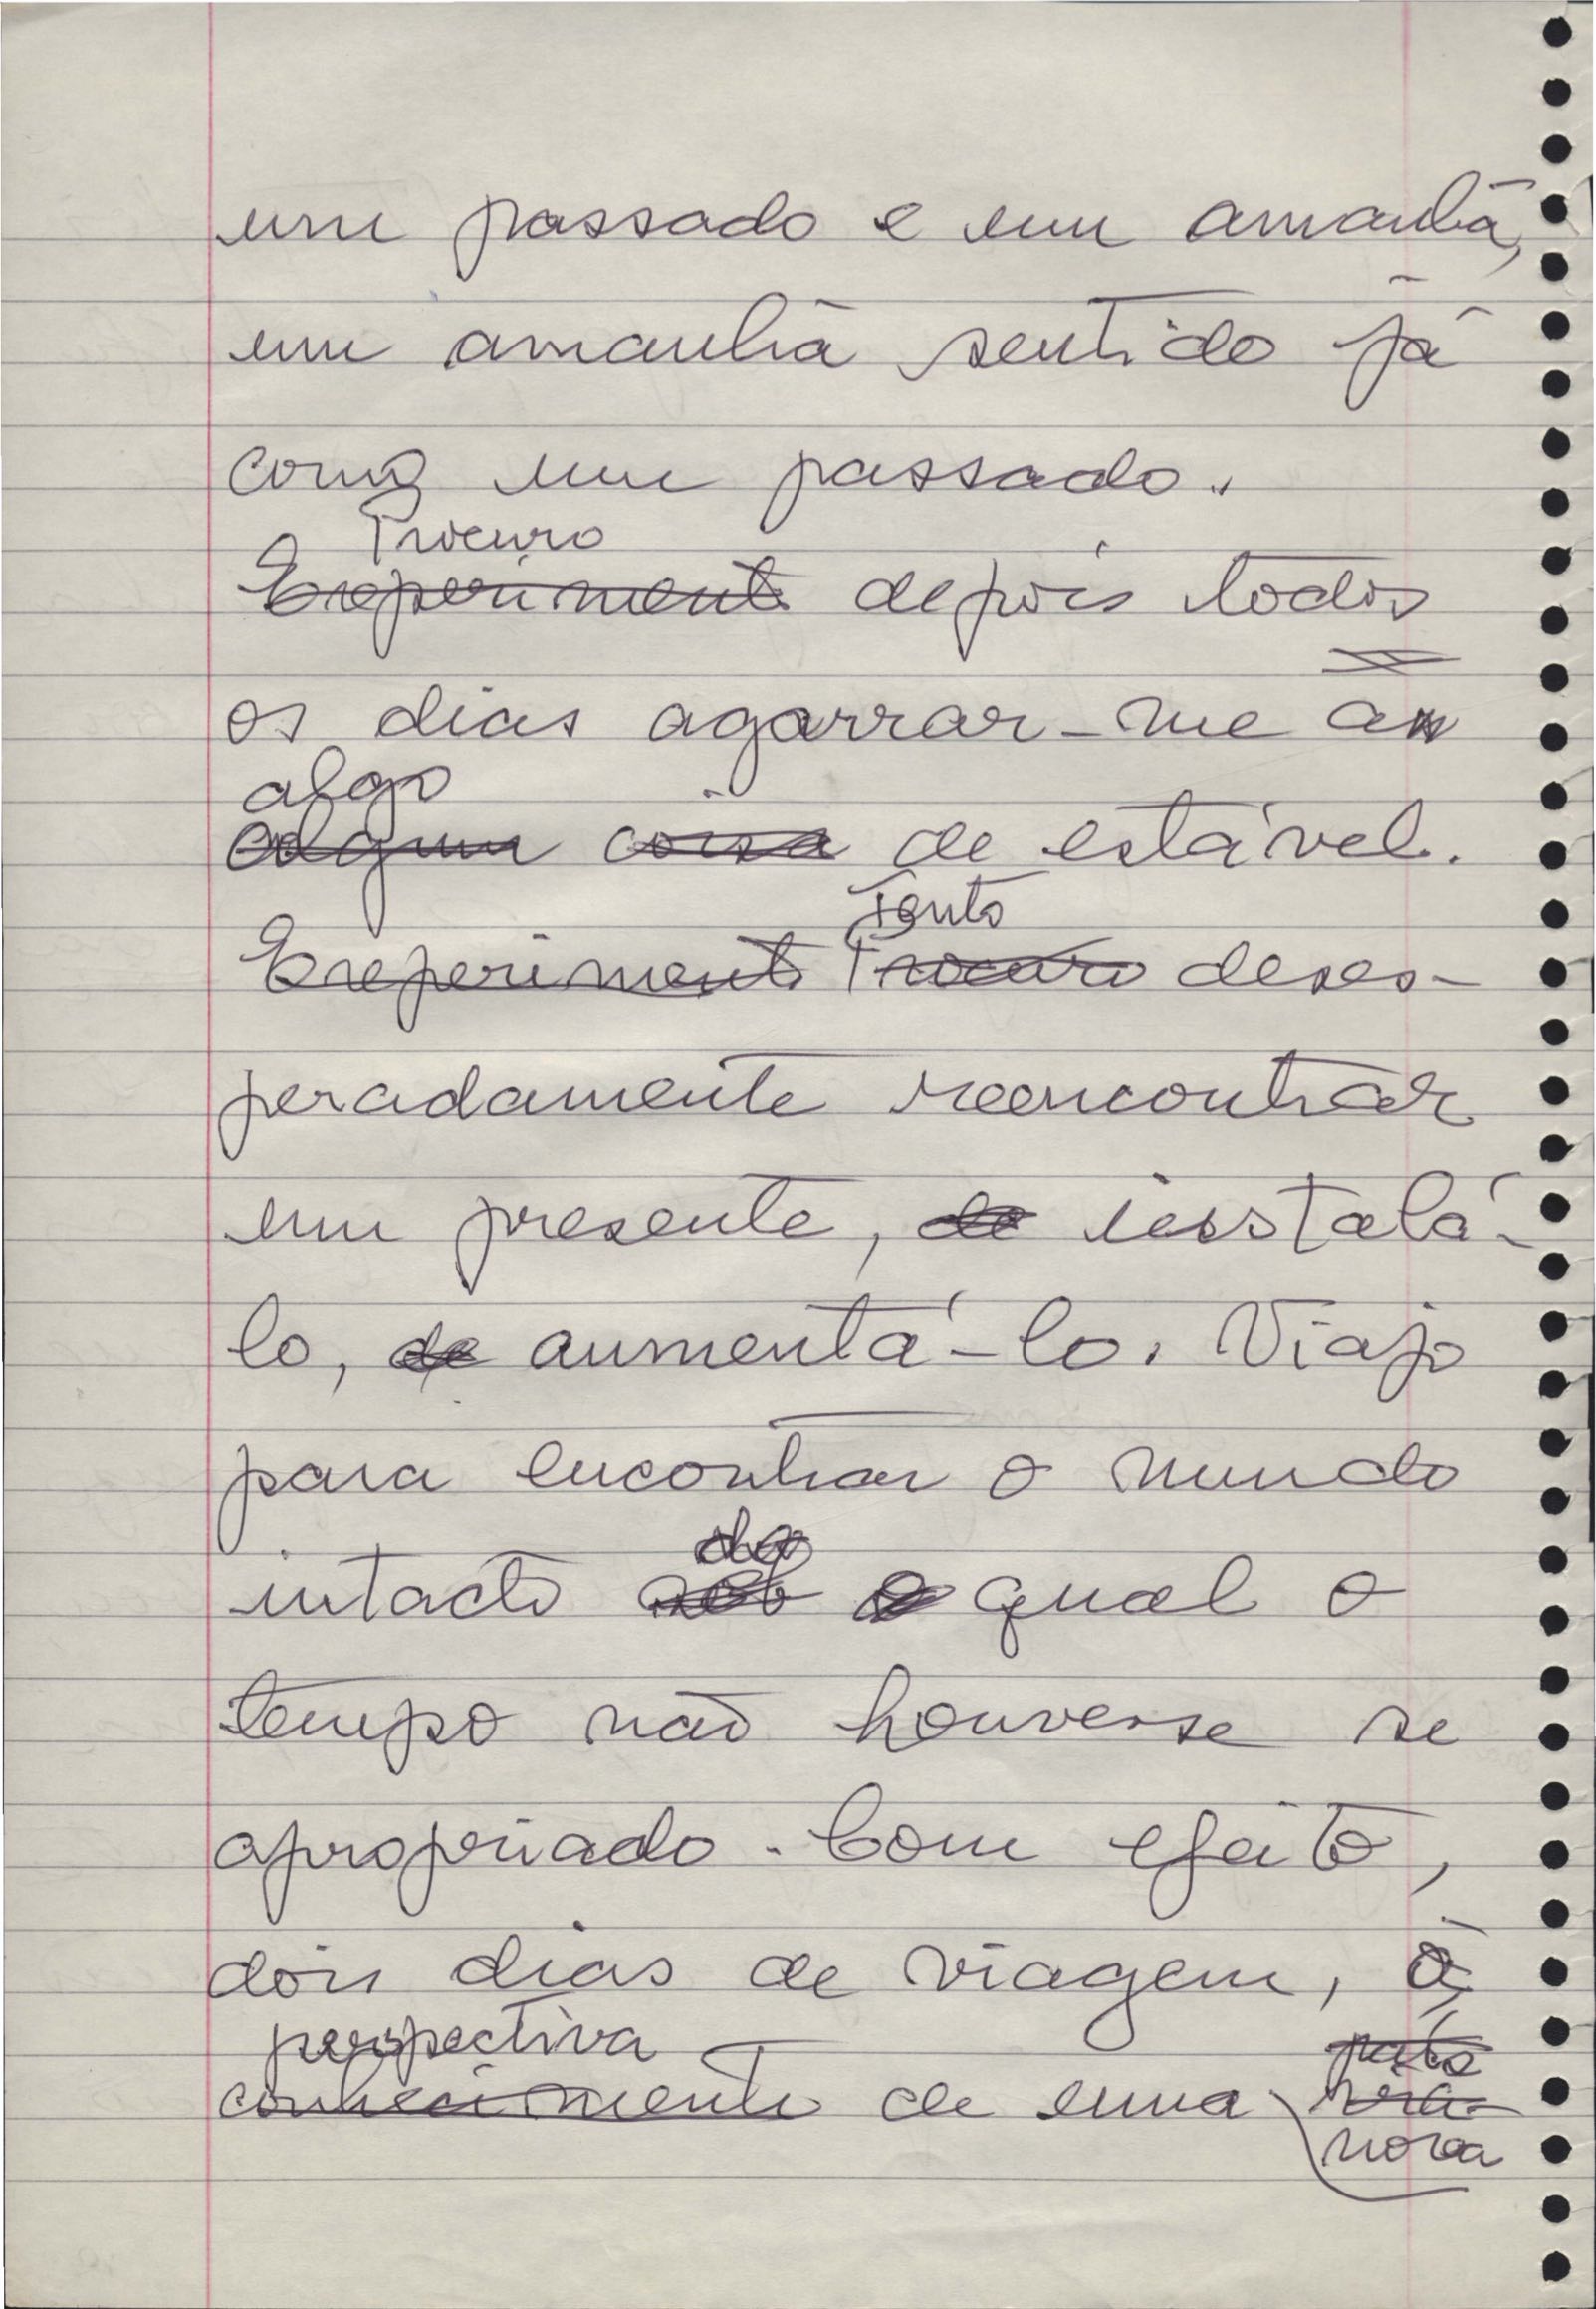 um passado e um amanhã,
um amanhã sentido já
como um passado.
Procuro
Experimento depois todos
os dias agarrar-me a
algo
alguma coisa de estável.
Tento
Experimento Procuro deses-
peradamente reencontrar
um presente, de instalá-
lo, de aumentá-lo. Viajo
para encontrar o mundo
intacto
do
qual o
tempo não houvesse se
apropriado. Com efeito,
dois dias de viagem, a
perspectiva
conhecimento de uma
nova